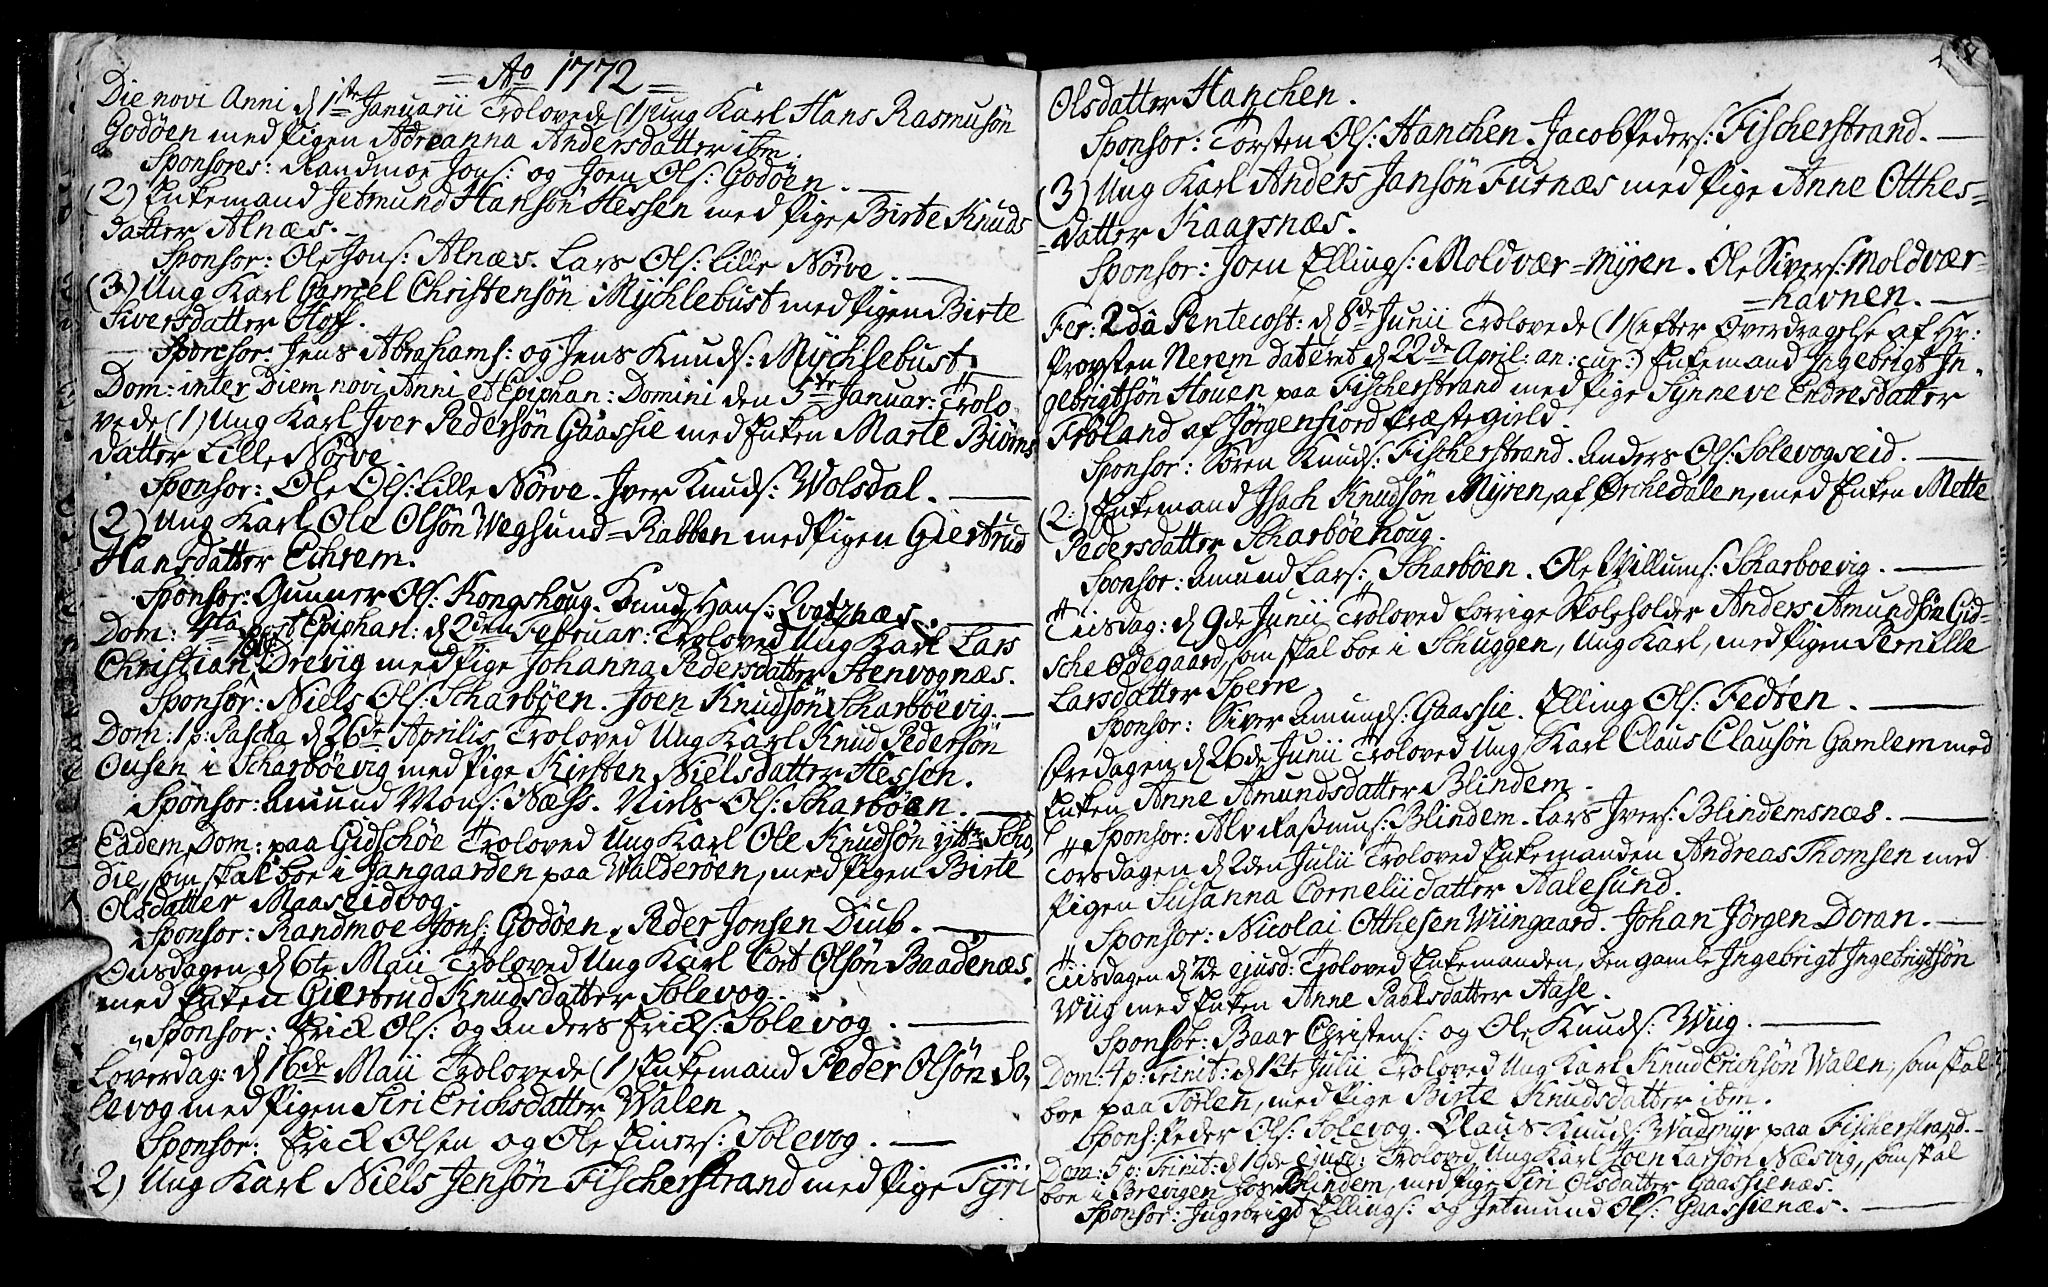 = Ao 1772 =
Die novi Anni d 1ste Januarii Trolovede (1) Ung Karl Hans Rasmusøn
Godøen med Pigen Adreanna Andersdatter ibm.
Sponsores: Randmoe Jons: og Joen Ols: Godøen.
(2) Enkemand Jetmund Hansøn Hessen med Pige Birte Knuds
datter Alnæs.
Sponsor: Ole Jons: Alnæs. Lars Ols: Lille Nørve.
(3) Ung Karl Gamel Christensøn Mychlebust med Pigen Birte
Siversdatter Hoff.
Sponsor: Jens Abrahams: og Jens Knuds: Mychlebust.
Dom: inter Diem novi Anni et Epiphan: Domini den 5te Januar: Trolo
vede (1) Ung Karl Iver Pedersøn Gaassie med Enken Marte Biørns
datter Lille Nørve.
Sponsor: Ole Ols: Lille Nørve. Iver Knuds: Wolsdal.
(2) Ung Karl Ole Olsøn Wegsund=Rabben med Pigen Giertrud
Hansdatter Echrem.
Sponsor: Gunner Ols: Kongshoug. Knud Hans: Qvatznæs.
Dom: 4ta post Epiphan: d 2den Februar: Troloved Ung Karl Lars
Christian Drevig med Pige Johanna Pedersdatter Stenvognæs.
Sponsor: Niels Ols: Scharbøen. Joen Knudsøn Scharbøevig.
Dom: 1 p: Pascha d 26de Aprilis Troloved Ung Karl Knud Pedersøn
Ousen i Scharbøevig med Pige Kirsten Nielsdatter Hessen.
Sponsor: Amund Mons: Næss. Niels Ols: Scharbøen.
Eadem Dom: paa Gidschøe Troloved Ung Karl Ole Knudsøn yttre Scho,
die, som skal boe i Jangaarden paa Walderøen, med Pigen Birte
Olsdatter Maaseidvog.
Sponsor: Randmoe Jons: Godøen. Peder Jonsen Diub.
Onsdagen d 6te Maii Troloved Ung Karl Cort Olsøn Baadenæs
med Enken Giertrud Knudsdatter Solevog.
Sponsor: Erick Ols: og Anders Ericks: Solevog.
Løverdag: d 16de Maii Trolovede (1) Enkemand Peder Olsøn So,
levog med Pigen Siri Erichsdatter Walen.
Sponsor: Erick Olsen og Ole Einers: Solevog.
2) Ung Karl Niels Jensøn Fischerstrand med Pige Tyri
Olsdatter Hanchen.
Sponsor: Torsten Ols: Hanchen. Jacob Peders: Fischerstrand.
(3) Ung Karl Anders Jansøn Furnæs med Pige Anne Otthes=
=datter Kaarsnæs.
Sponsor: Joen Ellings: Moldvær=Myren. Ole Sivers: Moldvær=
=havnen.
Fer: 2da Pentecost: d 8de Junii Trolovede (1) (efter Overdragelse af Hr:
Provsten Nerem dateret d 22de April: an: cur:) Enkemand Ingebrigt In,
gebrigtsøn Houen paa Fischerstrand med Pige Synneve Endresdatter
Frøland af Jørgenfiord Præstegield.
Sponsor: Søren Knuds: Fischerstrand. Anders Ols: Solevogseid.
(2:) Enkemand Isach Knudsøn Myren, af Ørchedalen, med Enken Mette
Pedersdatter Scharbøehoug.
Sponsor: Amund Lars: Scharbøen. Ole Willums: Scharboevig.
Tiisdag: d 9de Junii Troloved forrige Skoleholder Anders Amundsøn Gid=
sche Ødegaard, som skal boe i Schuggen, Ung Karl, med Pigen Pernille
Larsdatter Sperre.
Sponsor: Siver Amunds: Gaassie. Elling Ols: Fedten.
Fredagen d 26de Junii Troloved Ung Karl Claus Clausøn Gamlem med
Enken Anne Amundsdatter Blindem.
Sponsor: Alv Rasmus: Blindem. Lars Ivers: Blindemsnæs.
Torsdagen d 2den Julii Troloved Enkemanden Andreas Thomsen med
Pigen Susanna Corneliidatter Aalesund.
Sponsor: Nicolai Otthesen Wiingaard. Johan Jørgen Doran.
Tiisdagen d 7de ejusd: Troloved Enkemanden, den gamle Ingebrigt Ingebrigtsøn
Wiig med Enken Anne Paulsdatter Aase.
Sponsor: Baar Christens: og Ole Knuds: Wiig.
Dom: 4 p: Trinit: d 12te Julii Troloved Ung Karl Knud Erichsøn Walen, som skal
boe paa Tørlen, med Pige Birte Knudsdatter ibm.
Spons: Peder Ols: Solevog. Claus Knuds: Wadmyr paa Fischerstrand.
Dom: 5 p: Trinit: d 19de Ejusd: Troloved Ung Karl Joen Larsøn Næsvig, som skal
boe i Brevigen hos Blindem, med Pige Siri Olsdatter Gaassienæs.
Sponsor: Ingebrigd Ellings: og Jetmund Ols: Gaassienæs.